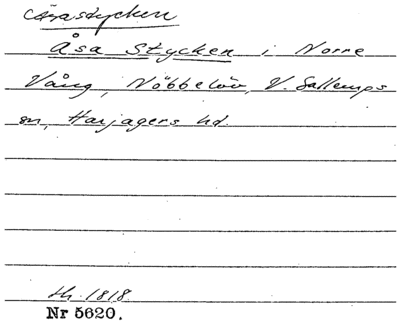 Åsastycken
Åsa Stycken i Norre
Vång, Nöbbelöv, V. Sallerups
sn, Harjagers hd.
sk. 1818
Nr 5620.